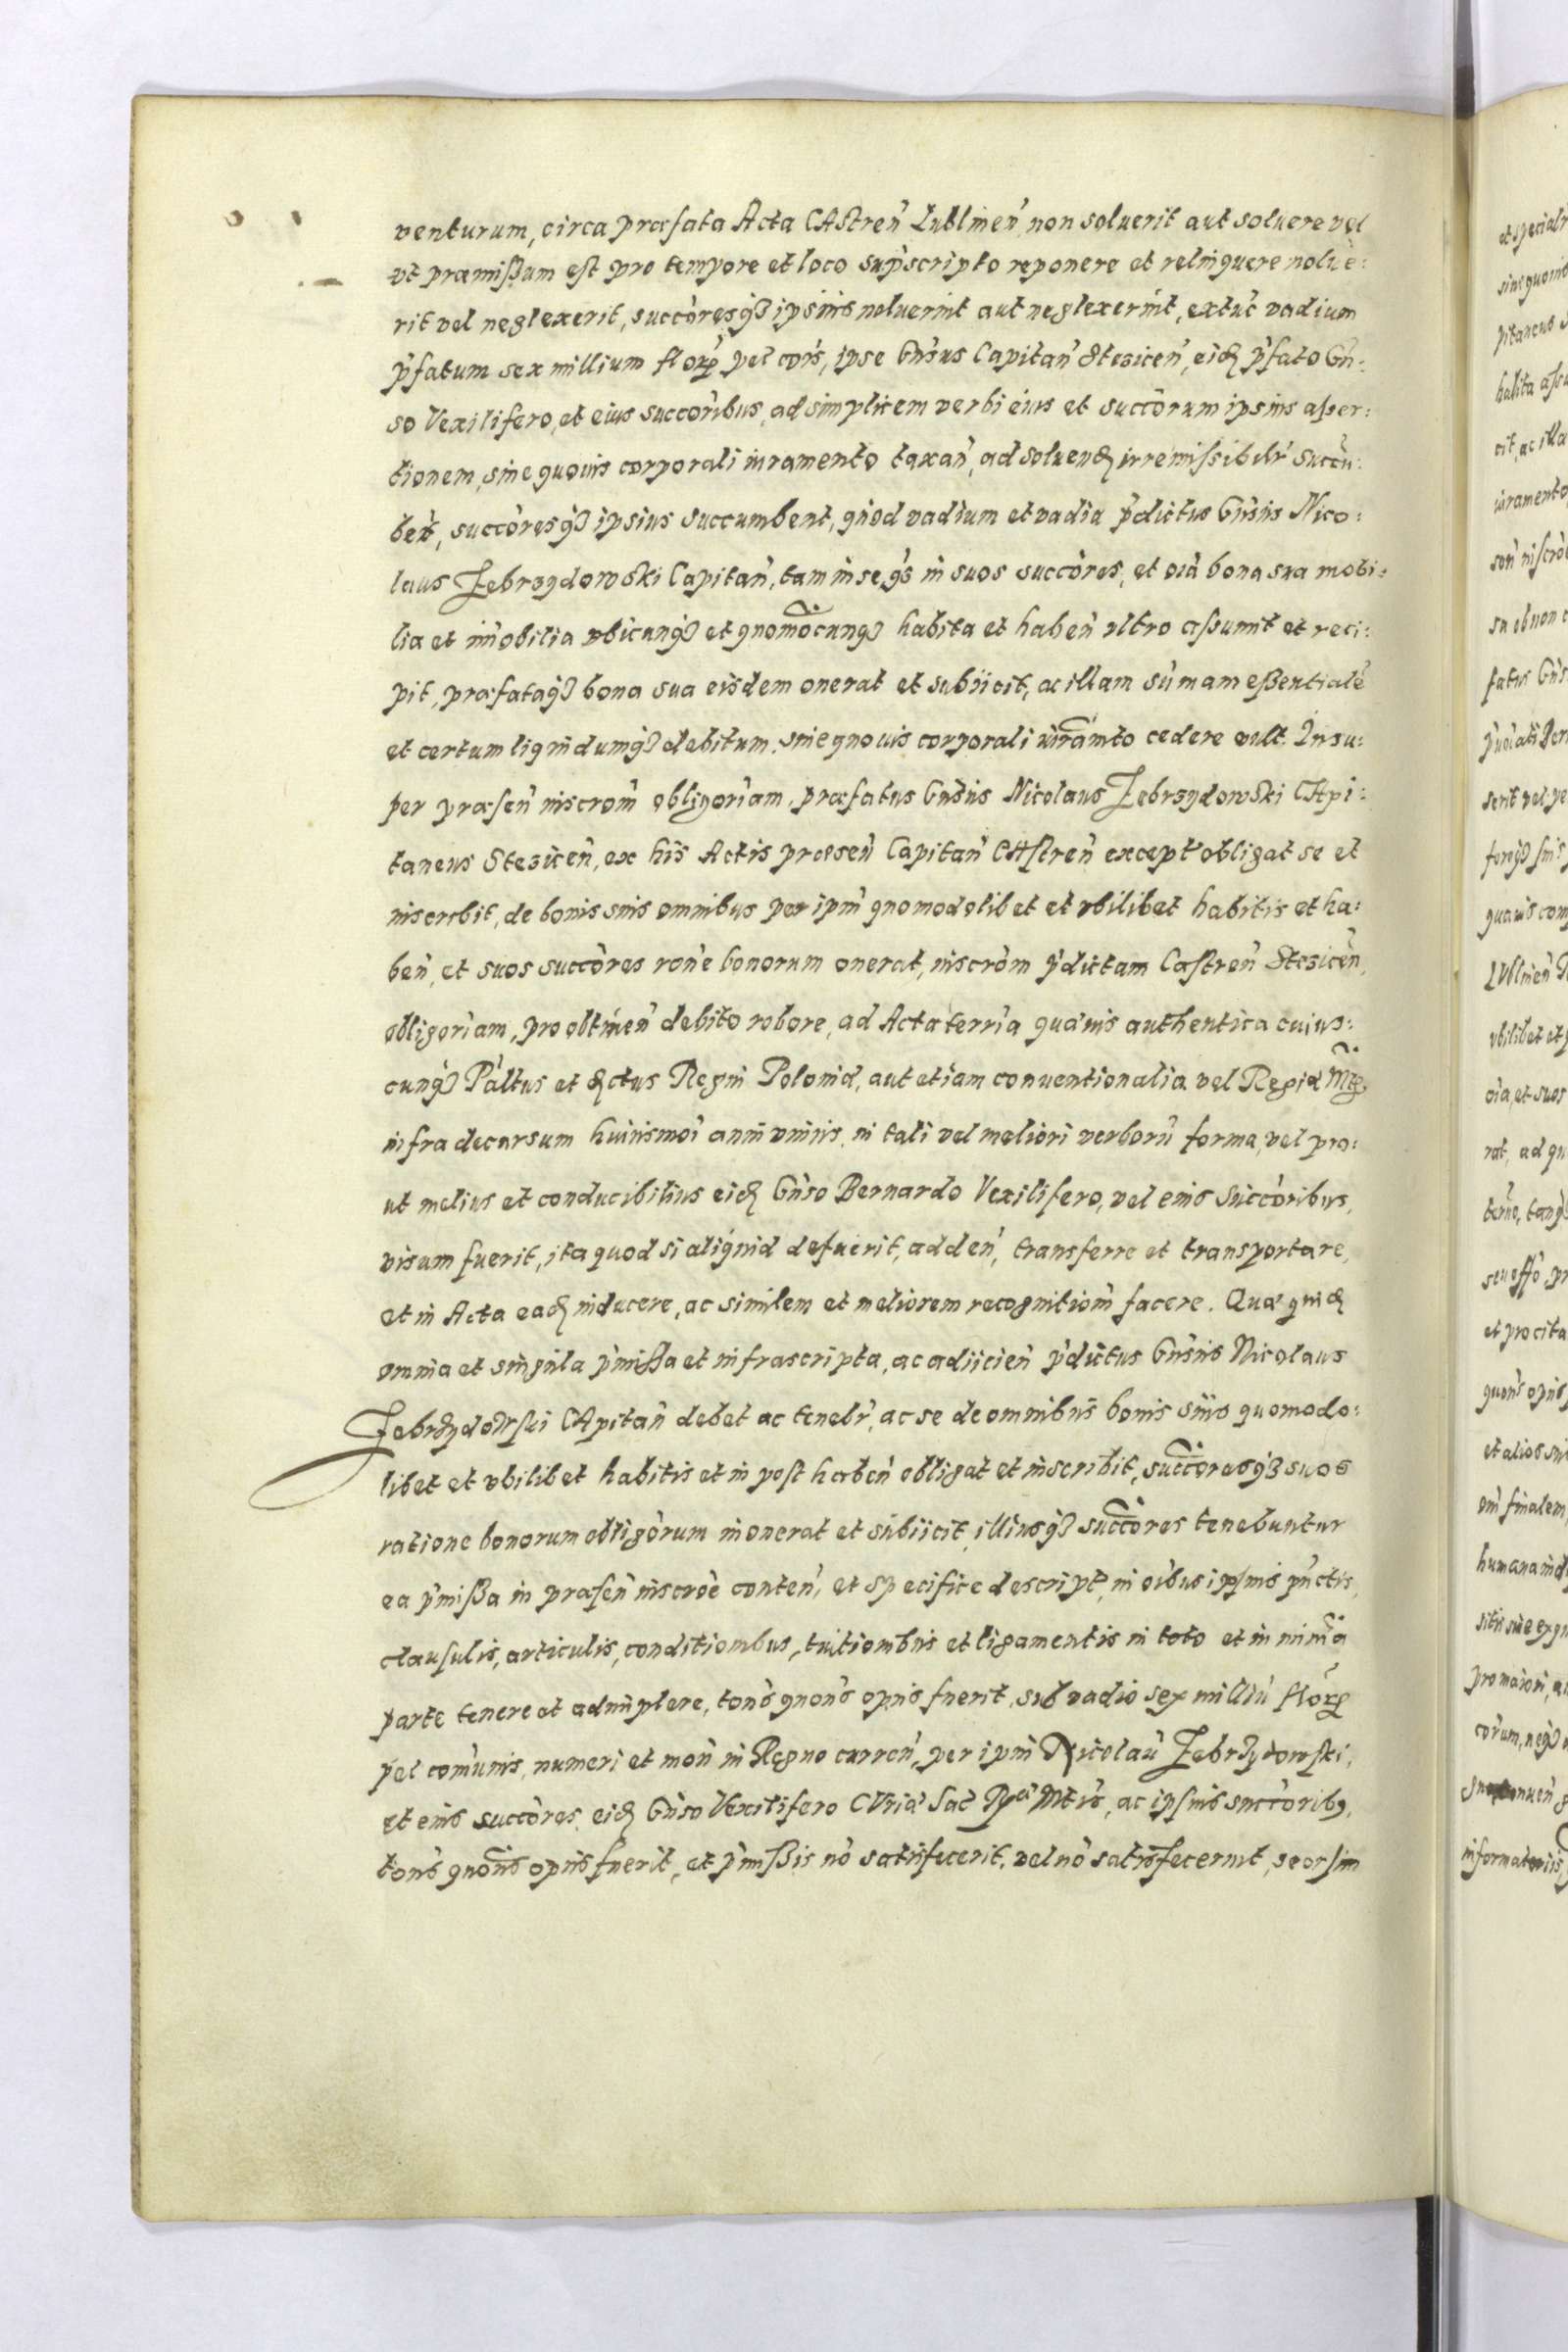 venturum, circa præfata Acta CAstreñ Lubliñeñ non soluerit aut soluere vel
vt præmißum est pro tempore et loco supscripto reponere et relinquere nolue:
rit vel neglexerit, succòresqȝ ipsius noluerint aut neglexerint, extuc vadium
p̀fatum sex millium florꝝ pel cois, ipse Gnsus Capitañ Stezicen, eidꝫ p̀fato Gn:
so Vexilifero, et eius succoribus, ad simplicem verbi eius et succorum ipsius aßer:
tionem, sine quouis corporali iuramento taxañ, ad soluendꝫ irremissibilr succu:
bet, succòresqȝ ipsius succumbent, quod vadium et vadia p̀dictus Gnsus Nico:
laus Zebrzydowski Capitañ, tam in se qs in suos succòres, et oia bona sua mobi:
lia et imobilia vbicunqȝ et quomocunqȝ habita et habeñ vltro aßumit et reci:
pit, præfataqȝ bona sua eisdem onerat et subiicit, ac illam sumam eßentiale
et certum liquidumqȝ debitum, sine quouis corporali iuramto cedere vult. Insu:
per præseñ inscrom obligoriam, præfatus Gnsus Nicolaus Zebrzydowski CApi:
taneus Stezicen, ex his Actis præseñ Capitañ CAstreñ except obligat se et
inscribit, de bonis suis omnibus per ipm quomodolibet et vbilibet habitis et ha:
beñ, et suos succòres rone bonorum onerat, inscrom p̀dictam Castreñ Stezicen,
obligoriam, pro obtineñ debito robore, ad Acta terria quæuis authentica cuius:
cunqȝ Paltus et dꝫctus Regni Poloniæ, aut etiam conuentionalia vel Regiæ Mtꝫ,
infra decursum huiusmoi anni vnius, in tali vel meliori verboru forma, vel pro:
ut melius et conducibilius eidꝫ Gnso Bernardo Vexilifero, vel eius succoribus,
visum fuerit, ita quod si aliquid defuerit, addeñ, transferre et transportare,
et in Acta eadꝫ inducere, ac similem et meliorem recognitiom facere. Quæ quidꝫ
omnia et singula p̀mißa et infrascripta, ac adiicieñ p̀dictus Gnsus Nicolaus
Zebrzydowski CApitañ debet ac tenebr, ac se de omnibus bonis suis quomodo:
libet et vbilibet habitis et in post habeñ obligat et inscribit, succoresqȝ suos
ratione bonorum obligorum inonerat et subiicit, illiusqȝ succores tenebuntur
ea p̀mißa in præseñ inscroe conteñ, et specifice descript, in oibus ipsius punctis,
clausulis, articulis, conditionibus, tuitionibus et ligamentis in toto et in minima
parte tenere et adimplere, tons quons opus fuerit, sub vadio sex milliu florꝝ
pel comunis, numeri et moñ in Regno curreñ, per ipm Nicolau Zebrzydowski,
et eius succòres, eidꝫ Gnso Vexilifero CVriæ Sac Ræ Mtis, ac ipsius succoribꝫ,
tons quons opus fuerit, et p̀mißis no satisfecerit, vel no satisfecerint, seorsim